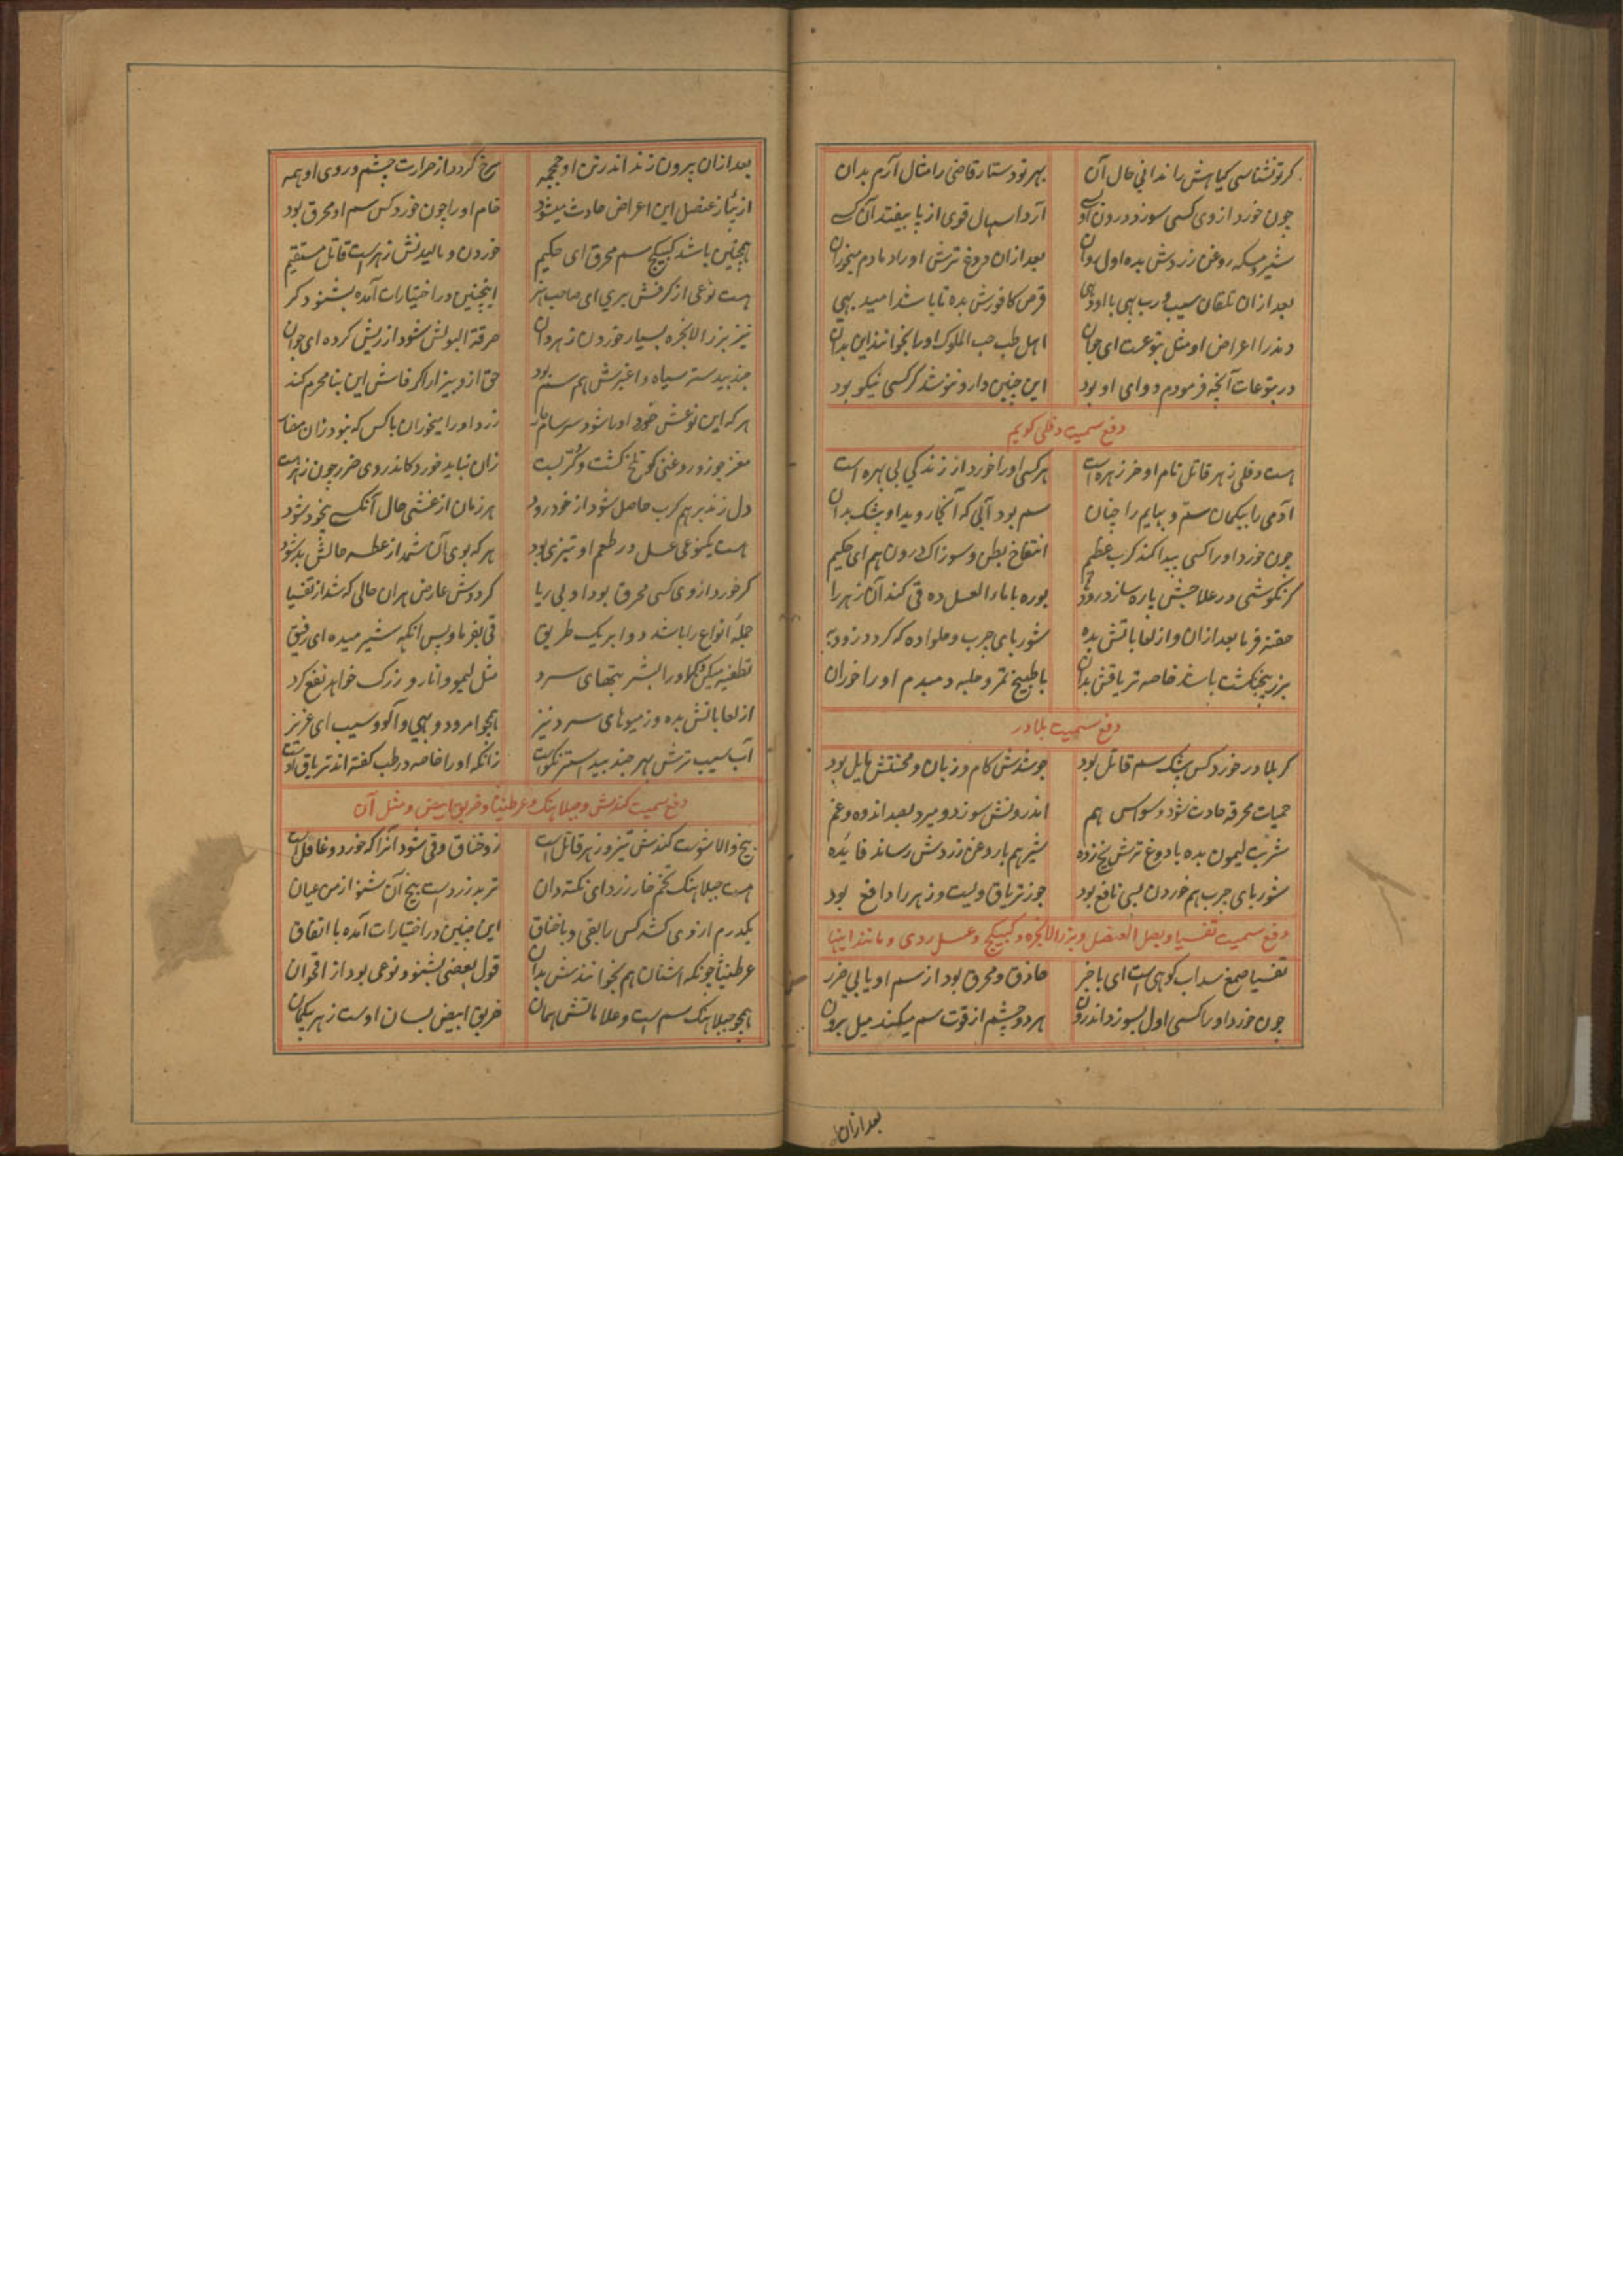 کر تو نشناسی کیاهش را ندانی حال آن بهر تو دستار قاضی را مثال آرم بدان
چون خورد از وی کسی سوزد درون آرد اسهال قوی از پا بیفتد آن
شیر و مسکه روغن زردش بده اول روان بعد ازان دروغ ترش او را دمادم میخوران
بعد ازان سیب و رب بهی با او دهی قرص کافورش بده تا باشد امید بهی
دند را اعراض او مثل یتوعست ای جوان اهل طب حب الملوک او را بخوانند این بدان
در یتوعات آنچه فرمودم دوای او بود این چنین دارو ننوشد کر کسی نیکو بود
دفع سمیت دفلی کویم
هست دفلی زهر قاتل نام او خرزهره است هر کسی او را خورد از زندکی بی بهره است
آدمی را بیکمان سم و بهایم را چنان سم بود آبی که آنجا روید او بیشک بدان
چون خورد او را کسی پیدا کند کرب عظیم انتفاخ بطن و سوزاک درون هم ای حکیم
کر نکوشی در علاجش پاره سازد روده بوره با ماء العسل ده قی کند آن زهر را
حقنه فرما بعد ازان و از لعاباتش بده شوربای چرب و حلوا ده که کردد زود به
بزر پنجنکشت باشد خاصه تریاقش بدان با طبیخ تمر و حلبه دمبدم او را خوران
دفع سمیت بلادر
کر بلادر خورد کس بیشک سم قاتل بود جوشدش کام و زبان و محنتش هایل بود
حمیات محرقه حادث شود وسواس هم اندرونش سوزد و میرد بعد اندوه و غم
شربت لیمون بده با دوغ ترش یخ زده شیر هم با روغن زردش رساند فایده
شوربای چرب هم خوردن بسی نافع بود جوز تریاق ویست و زهر را دافع بود
دفع سمیت تفسیا و بصل العنصل و بزر الانجره و کبیکج و عسل ردی و مانند اینها
تفسیا صمغ سداب کوهی است ای با خبر حاذق و محرق بود از سم او یابی ضرر
چون خورد او را کسی اول بسوزد اندرون هر دو چشم از قوت سم میکند میل برون
بعد ازان
بعد ازان بیرون زند اندر تن او جمجمه سرخ کردد از حرارت چشم و روی او همه
از پیاز عنصل این اعراض حادث میشود خام او را چون خورد کس سم او محرق بود
همچنین باشد کبیکج سم محرق ای حکیم خوردن و مالیدنش زهر است قاتل مستقیم
هست نوعی از کرفش بری ای صاحب هنر اینچنین در اختیارات آمده بشنو دکر
نیز بزر الانجره بسیار خوردن زهر دان حرقة البولش شود از ریش کرده ای جوان
جند بیدستر سیاه و اغبرش هم سم بود حق ازو بیزار اکر فاش این بنا محرم کند
هر که این نوعش خورد او را شود سرسام زرد او را میخوران باکس که نبود زان
مغز جوز و روغنی کو تلخ کشت و زان نباید خورد کاندر وی ضرر چون زهر هست
دل زند بر هم کرب حاصل شود از خود رود هر زمان از غشی حال آنکسی بیخود شود
هست یکنوعی عسل در طعم او تیزی بود هر که بوی آن شمد از عطسه حالش بد شود
کر خورد از وی کسی محرق بود او بی ریا کرددش عارض هر آن حالی که شد از تفسیا
جمله انواع را باشد دوا بر یک طریق قی بفرما و پس آنکه شیر میده ای رفیق
تطفیه میکن او را بشربتهای سرد مثل لیمو و انار و زرک خواهد نفع کرد
از لعاباتش بده وز میوهای سرد نیز همچو امرود و بهی و آلو و سیب ای عزیز
آب سیب ترش بهر جند بیدستر نکوست زانکه او را خاصه در طب کفته اند تریاق اوست
دفع سمیت کندش و جبلاهنک و عرطنیثا و خربق ابیض و مثل آن
بیخ کندش تیز و زهر قاتل است زو خناق و قی شود آنرا که خورد و غافل است
هست جبلاهنک تخم خار زرد ای نکته دان تربد زرد است بیخ آن شنو از من عیان
یکدرم از وی کشد کس را بقی و با خناق این چنین در اختیارات آمده با اتفاق
عرطنیثا چونکه اشنان هم بخوانندش بدان قول بعضی بشنو و نوعی بود از اقحوان
همچو جبلاهنک سم است و علاماتش همان خربق ابیض بسان اوست زهر بیکمان